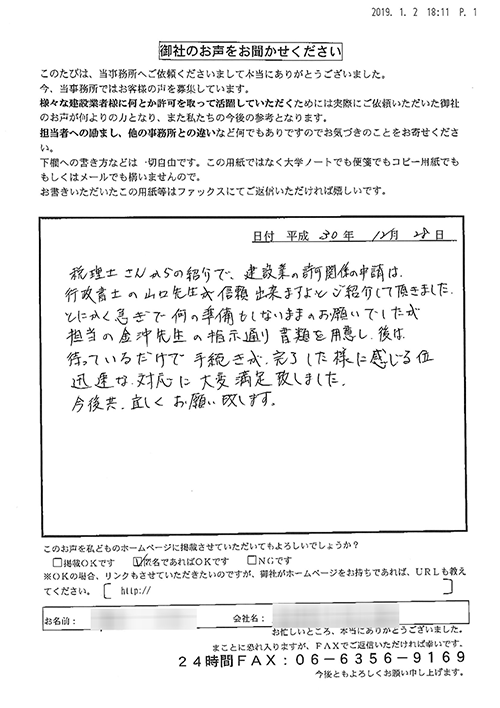 2019. 1. 2 18:11 P. 1
御社のお声をお聞かせください
このたびは、当事務所へご依頼くださいまして本当にありがとうございました。
今、当事務所ではお客様の声を募集しています。
様々な建設業者様に何とか許可を取って活躍していただくためには実際にご依頼いただいた御社
のお声が何よりの力となり、また私たちの今後の参考となります。
担当者への励まし、他の事務所との違いなど何でもありですのでお気づきのことをお寄せくださ
い。
下欄への書き方などは一切自由です。この用紙ではなく大学ノートでも便箋でもコピー用紙でも
もしくはメールでも構いませんので。
お書きいただいたこの用紙等はファックスにてご返信いただければ嬉しいです。
日付 平成 30 年 12 月 28 日
税理士さんからの紹介で、建設業の許可関係の申請は、
行政書士の山口先生が信頼出来ますよとご紹介して頂きました。
とにかく急ぎで何の準備もしないままのお願いでしたが
担当の金沖先生の指示通り書類を用意し、後は、
待っているだけで手続きが、完了した様に感じる位
迅速な対応に大変満足致しました。
今後共、宜しくお願い致します。
このお声を私どものホームページに掲載させていただいてもよろしいでしょうか?
□掲載OKです ☑仮名であればOKです □NGです
※OKの場合、リンクもさせていただきたいのですが、御社がホームページをお持ちであれば、URLも教え
てください。〔 http:// 〕
お名前: 会社名:
お忙しいところ、本当にありがとうございました。
まことに恐れ入りますが、FAXでご返信いただければ幸いです。
24時間FAX:06-6356-9169
今後ともよろしくお願い申し上げます。